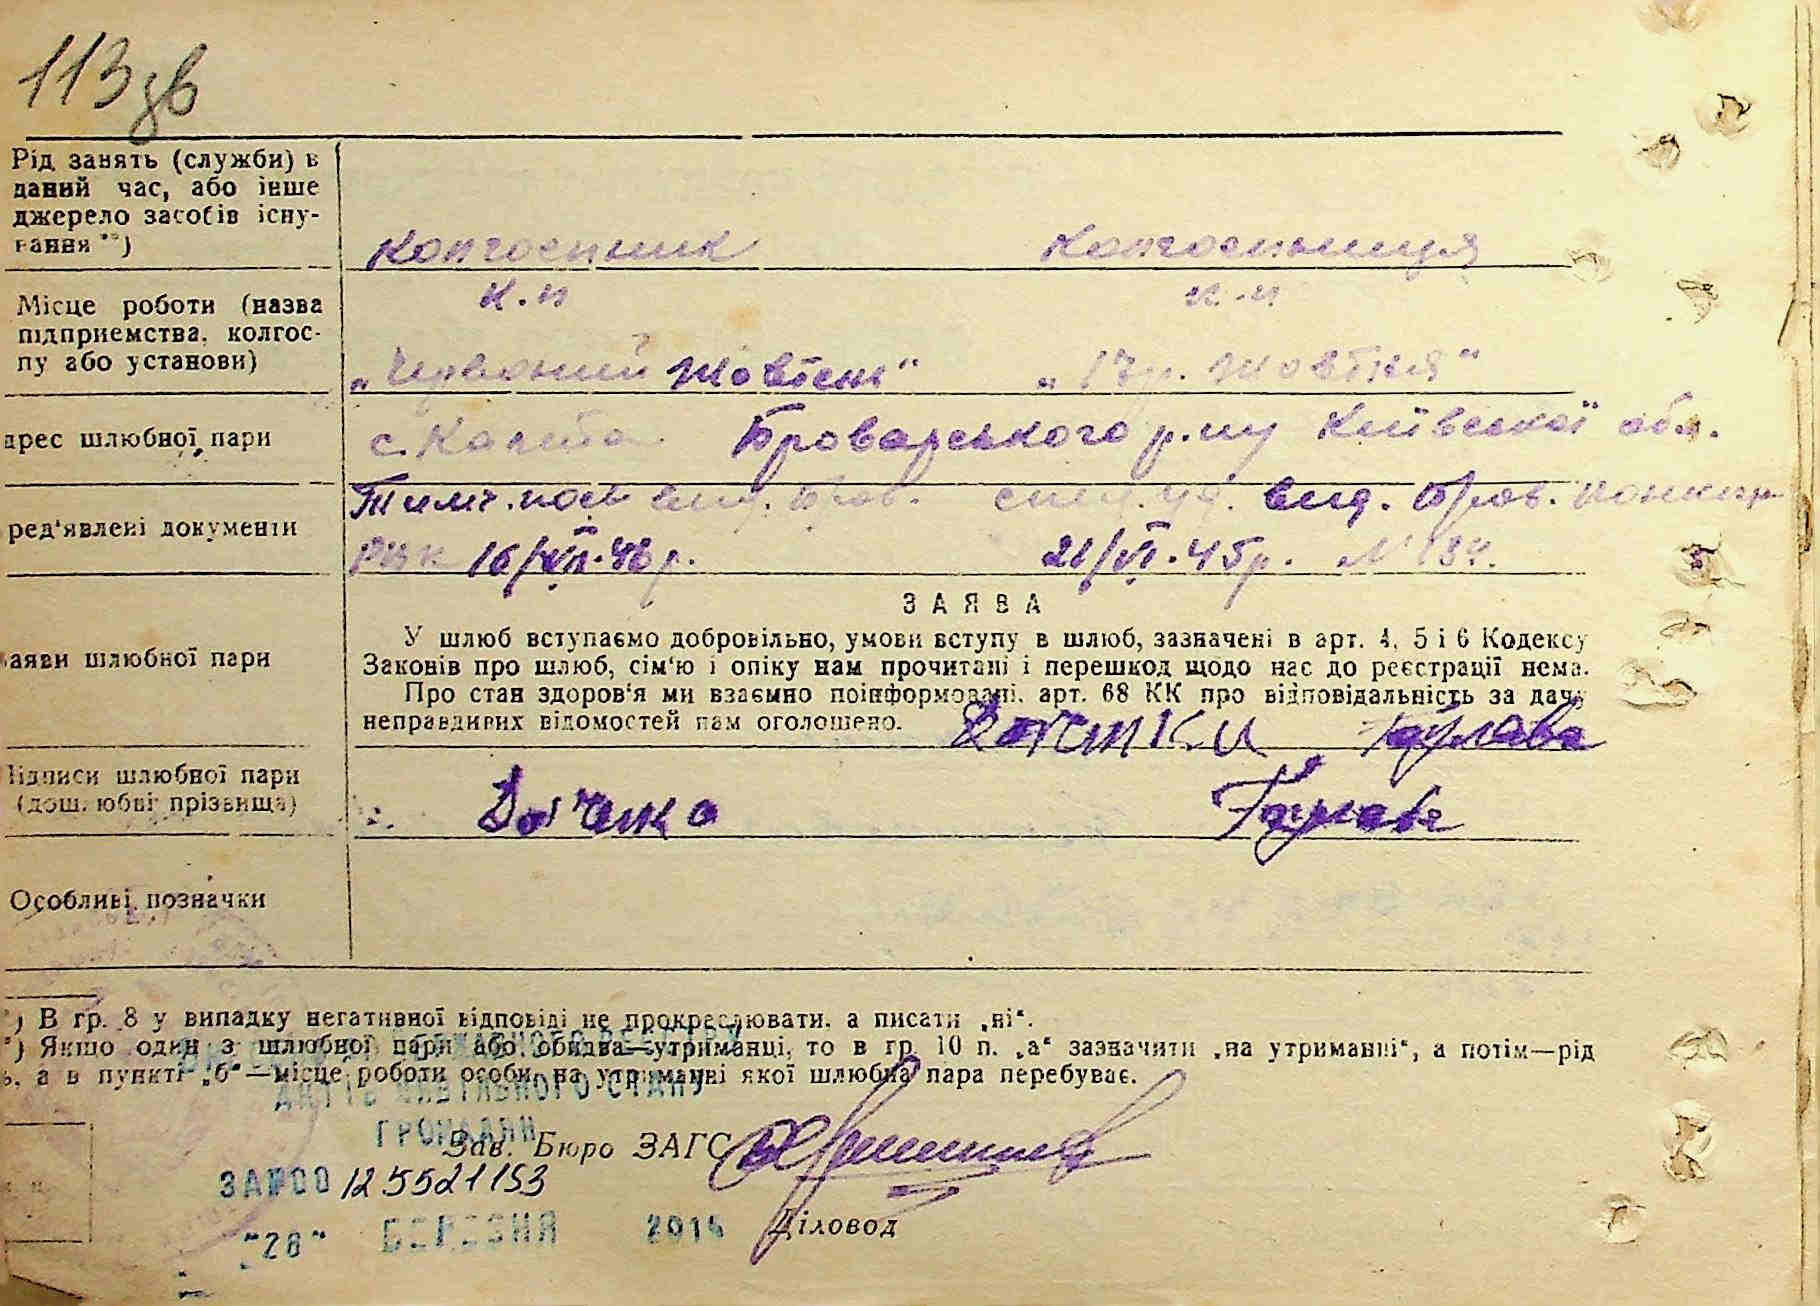 113зв
Рід занять (служби) в
даний час, або інше
джерело засобів існу-
вання **)
колгоспник колгоспниця
Місце роботи (назва
підприємства, колгос-
пу або установи)
к.п к.п
„Червоний Жовтень" „17 р. Жовтня"
дрес шлюбної пари
с. Калита Броварського р.ну Київської обл.
ред'явлені документи
Тимч. посв вид. Бров. вид. Бров.
РВК 16/VII.46 р. 21/VI.45р. № 134.
ЗАЯВА
аяви шлюбної пари
У шлюб вступаємо добровільно, умови вступу в шлюб, зазначені в арт. 4, 5 і 6 Кодексу
Законів про шлюб, сім'ю і опіку нам прочитані і перешкод щодо нас до реєстрації нема.
Про стан здоров'я ми взаємно поінформовані. арт. 68 КК про відповідальність за дачу
неправдивих відомостей нам оголошено.
Підписи шлюбної пари
(дошлюбні прізвища)
Особливі позначки
*) В гр. 8 у випадку негативної відповіді не прокреслювати, а писати „ні".
*) Якщо один з шлюбної пари або обидва—утриманці, то в гр. 10 п. „а" зазначити „на утриманні", а потім—рід
ь, а в пункті „б"—місце роботи особи, на утриманні якої шлюбна пара перебуває.
ДЕРЖАВНОГО РЕЄСТРУ
АКТІВ ЦИВІЛЬНОГО СТАНУ
ГРОМАДЯН
Зав. Бюро ЗАГС
ЗА№00 125521153
"28" БЕРЕЗНЯ 2015
Діловод